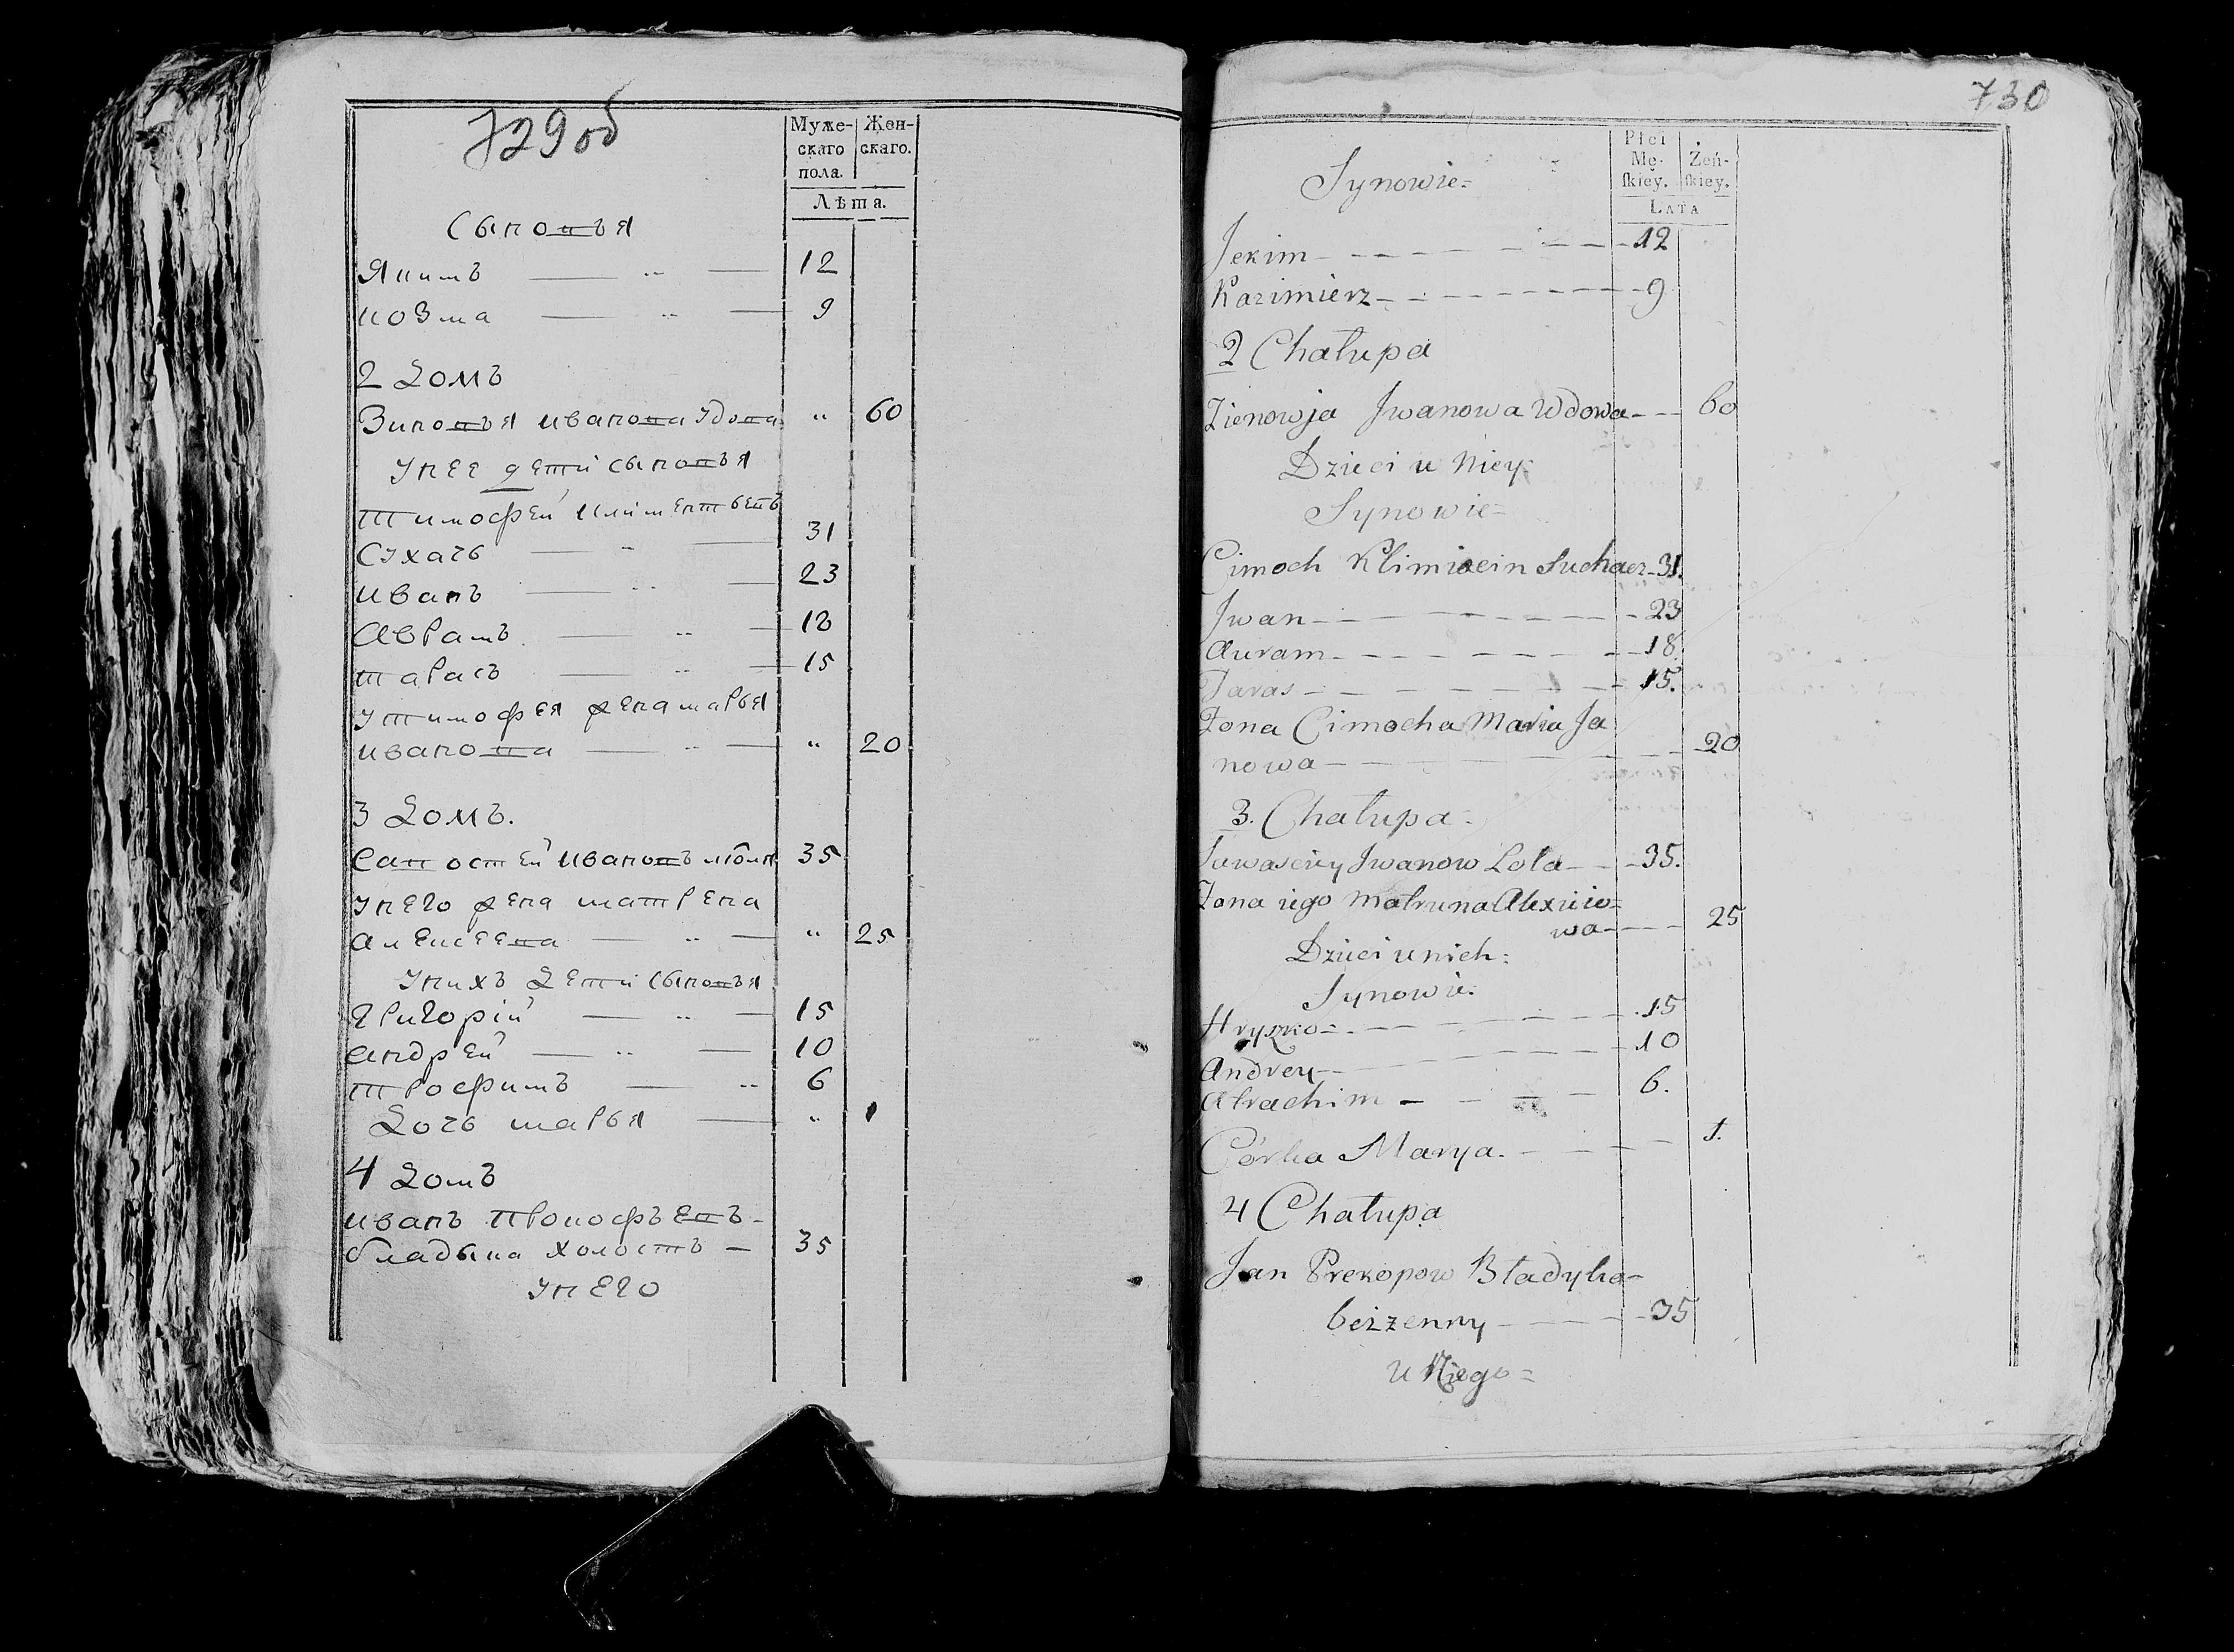 729 об
Муже-
скаго
пола.
Жен-
скаго.
Лѣта.
Сыновья
Якимъ — „ — 12
Козма — „ — 9
2 Домъ
Зиновья Иванова Удова „ 60
У нее дети сыновья
Тимофей Климентьевъ
Сухачь — „ — 31
Иванъ — „ — 23
Аврамъ — „ — 18
Тарасъ — „ — 15
У Тимофея жена Марья
Иванова — „ — „ 20
3 Домъ.
Савостей Ивановъ 35
У него жена Матрена
Алексеева — „ — „ 25
У нихъ дети сыновья
Григорій — „ — 15
Андрей — „ — 10
Трофимъ — „ 6
Дочь Марья — „ 1
4 Домъ
Иванъ Прокофьевъ-
Бладыка холостъ — 35
У него
730
Płci
Mę-
ſkiey.
Żeń-
ſkiey.
Lata
Synowie=
Jekim 12
Kazimierz 9
2 Chałupa
Zienowja Jwanowa Wdowa 60
Dzieci u Niey
Synowie=
Cimoch Suchacz 31.
Jwan 23
Auram 18
Taras 15.
Zona Cimocha Maria Ja
nowa 20
3. Chałupa=
Sawasciey Jwanow Lola 35.
Zona iego Matruna Alexieie=
wa 25
Dzieci u nich:
Synowie:
Hryszko 15
Andrey 10
Atrachim 6.
Córka Marya. 1.
4 Chałupa
Jan Prekopow Bładyka-
bezzenny 35
u Niego=